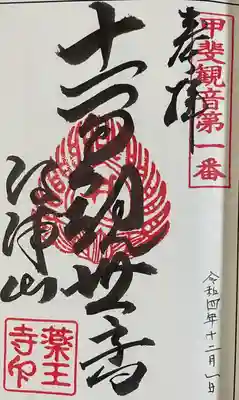 甲斐観音第一番
奉拝
令和四年十二月一日
十一面観世音
河浦山
薬王寺印